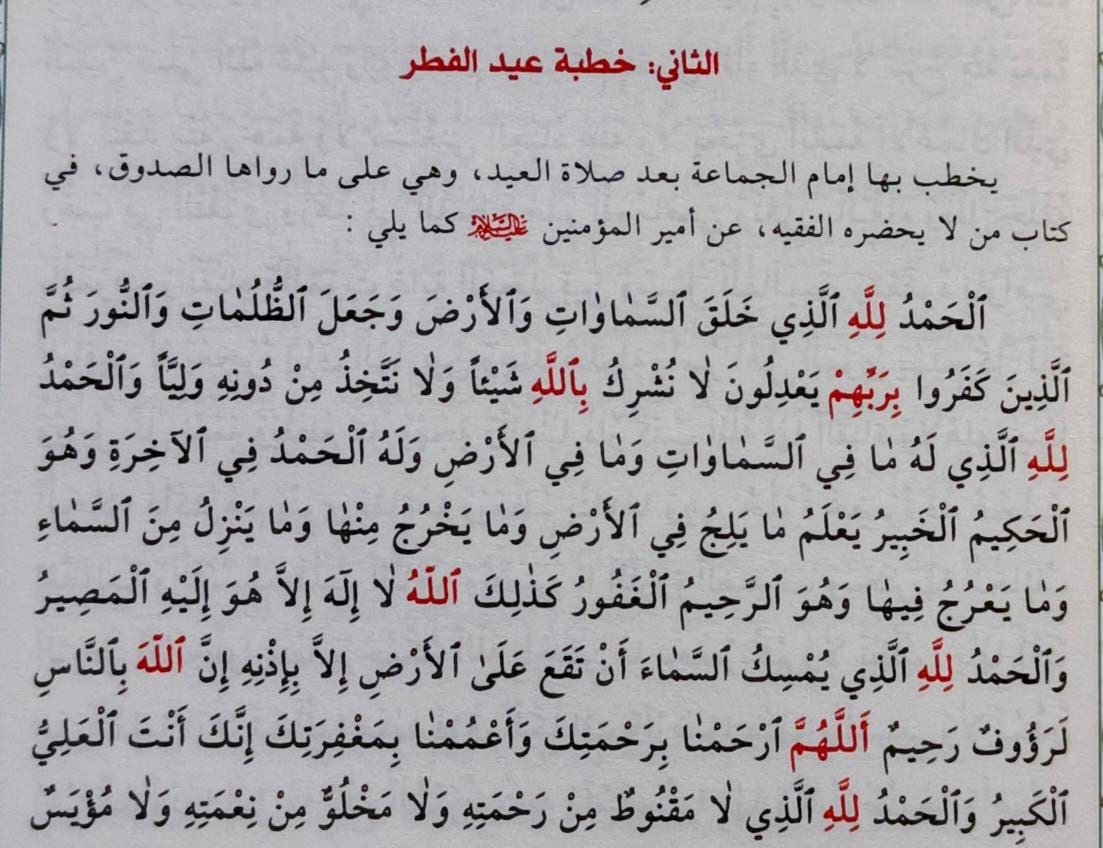 الثاني: خطبة عيد الفطر
يخطب بها إمام الجماعة بعد صلاة العيد، وهي على ما رواها الصدوق، في
كتاب من لا يحضره الفقيه، عن أمير المؤمنين عليه السلام كما يلي :
ٱلْحَمْدُ لِلَّهِ ٱلَّذِي خَلَقَ ٱلسَّمٰاوٰاتِ وَٱلأَرْضَ وَجَعَلَ ٱلظُّلُمٰاتِ وَٱلنُّورَ ثُمَّ
ٱلَّذِينَ كَفَرُوا بِرَبِّهِمْ يَعْدِلُونَ لٰا نُشْرِكُ بِٱللَّهِ شَيْئاً وَلٰا نَتَّخِذُ مِنْ دُونِهِ وَلِيَّاً وَٱلْحَمْدُ
لِلَّهِ ٱلَّذِي لَهُ مٰا فِي ٱلسَّمٰاوٰاتِ وَمٰا فِي ٱلأَرْضِ وَلَهُ ٱلْحَمْدُ فِي ٱلآخِرَةِ وَهُوَ
ٱلْحَكِيمُ ٱلْخَبِيرُ يَعْلَمُ مٰا يَلِجُ فِي ٱلأَرْضِ وَمٰا يَخْرُجُ مِنْهٰا وَمٰا يَنْزِلُ مِنَ ٱلسَّمٰاءِ
وَمٰا يَعْرُجُ فِيهٰا وَهُوَ ٱلرَّحِيمُ ٱلْغَفُورُ كَذٰلِكَ ٱللَّهُ لٰا إِلَهَ إِلاَّ هُوَ إِلَيْهِ ٱلْمَصِيرُ
وَٱلْحَمْدُ لِلَّهِ ٱلَّذِي يُمْسِكُ ٱلسَّمٰاءَ أَنْ تَقَعَ عَلَىٰ ٱلأَرْضِ إِلاَّ بِإِذْنِهِ إِنَّ ٱللَّهَ بِٱلنَّاسِ
لَرَؤُوفٌ رَحِيمٌ أَللَّهُمَّ ٱرْحَمْنٰا بِرَحْمَتِكَ وَٱعْمُمْنٰا بِمَغْفِرَتِكَ إِنَّكَ أَنْتَ ٱلْعَلِيُّ
ٱلْكَبِيرُ وَٱلْحَمْدُ لِلَّهِ ٱلَّذِي لٰا مَقْنُوطٌ مِنْ رَحْمَتِهِ وَلٰا مَخْلُوٌّ مِنْ نِعْمَتِهِ وَلٰا مُؤْيَسٌ